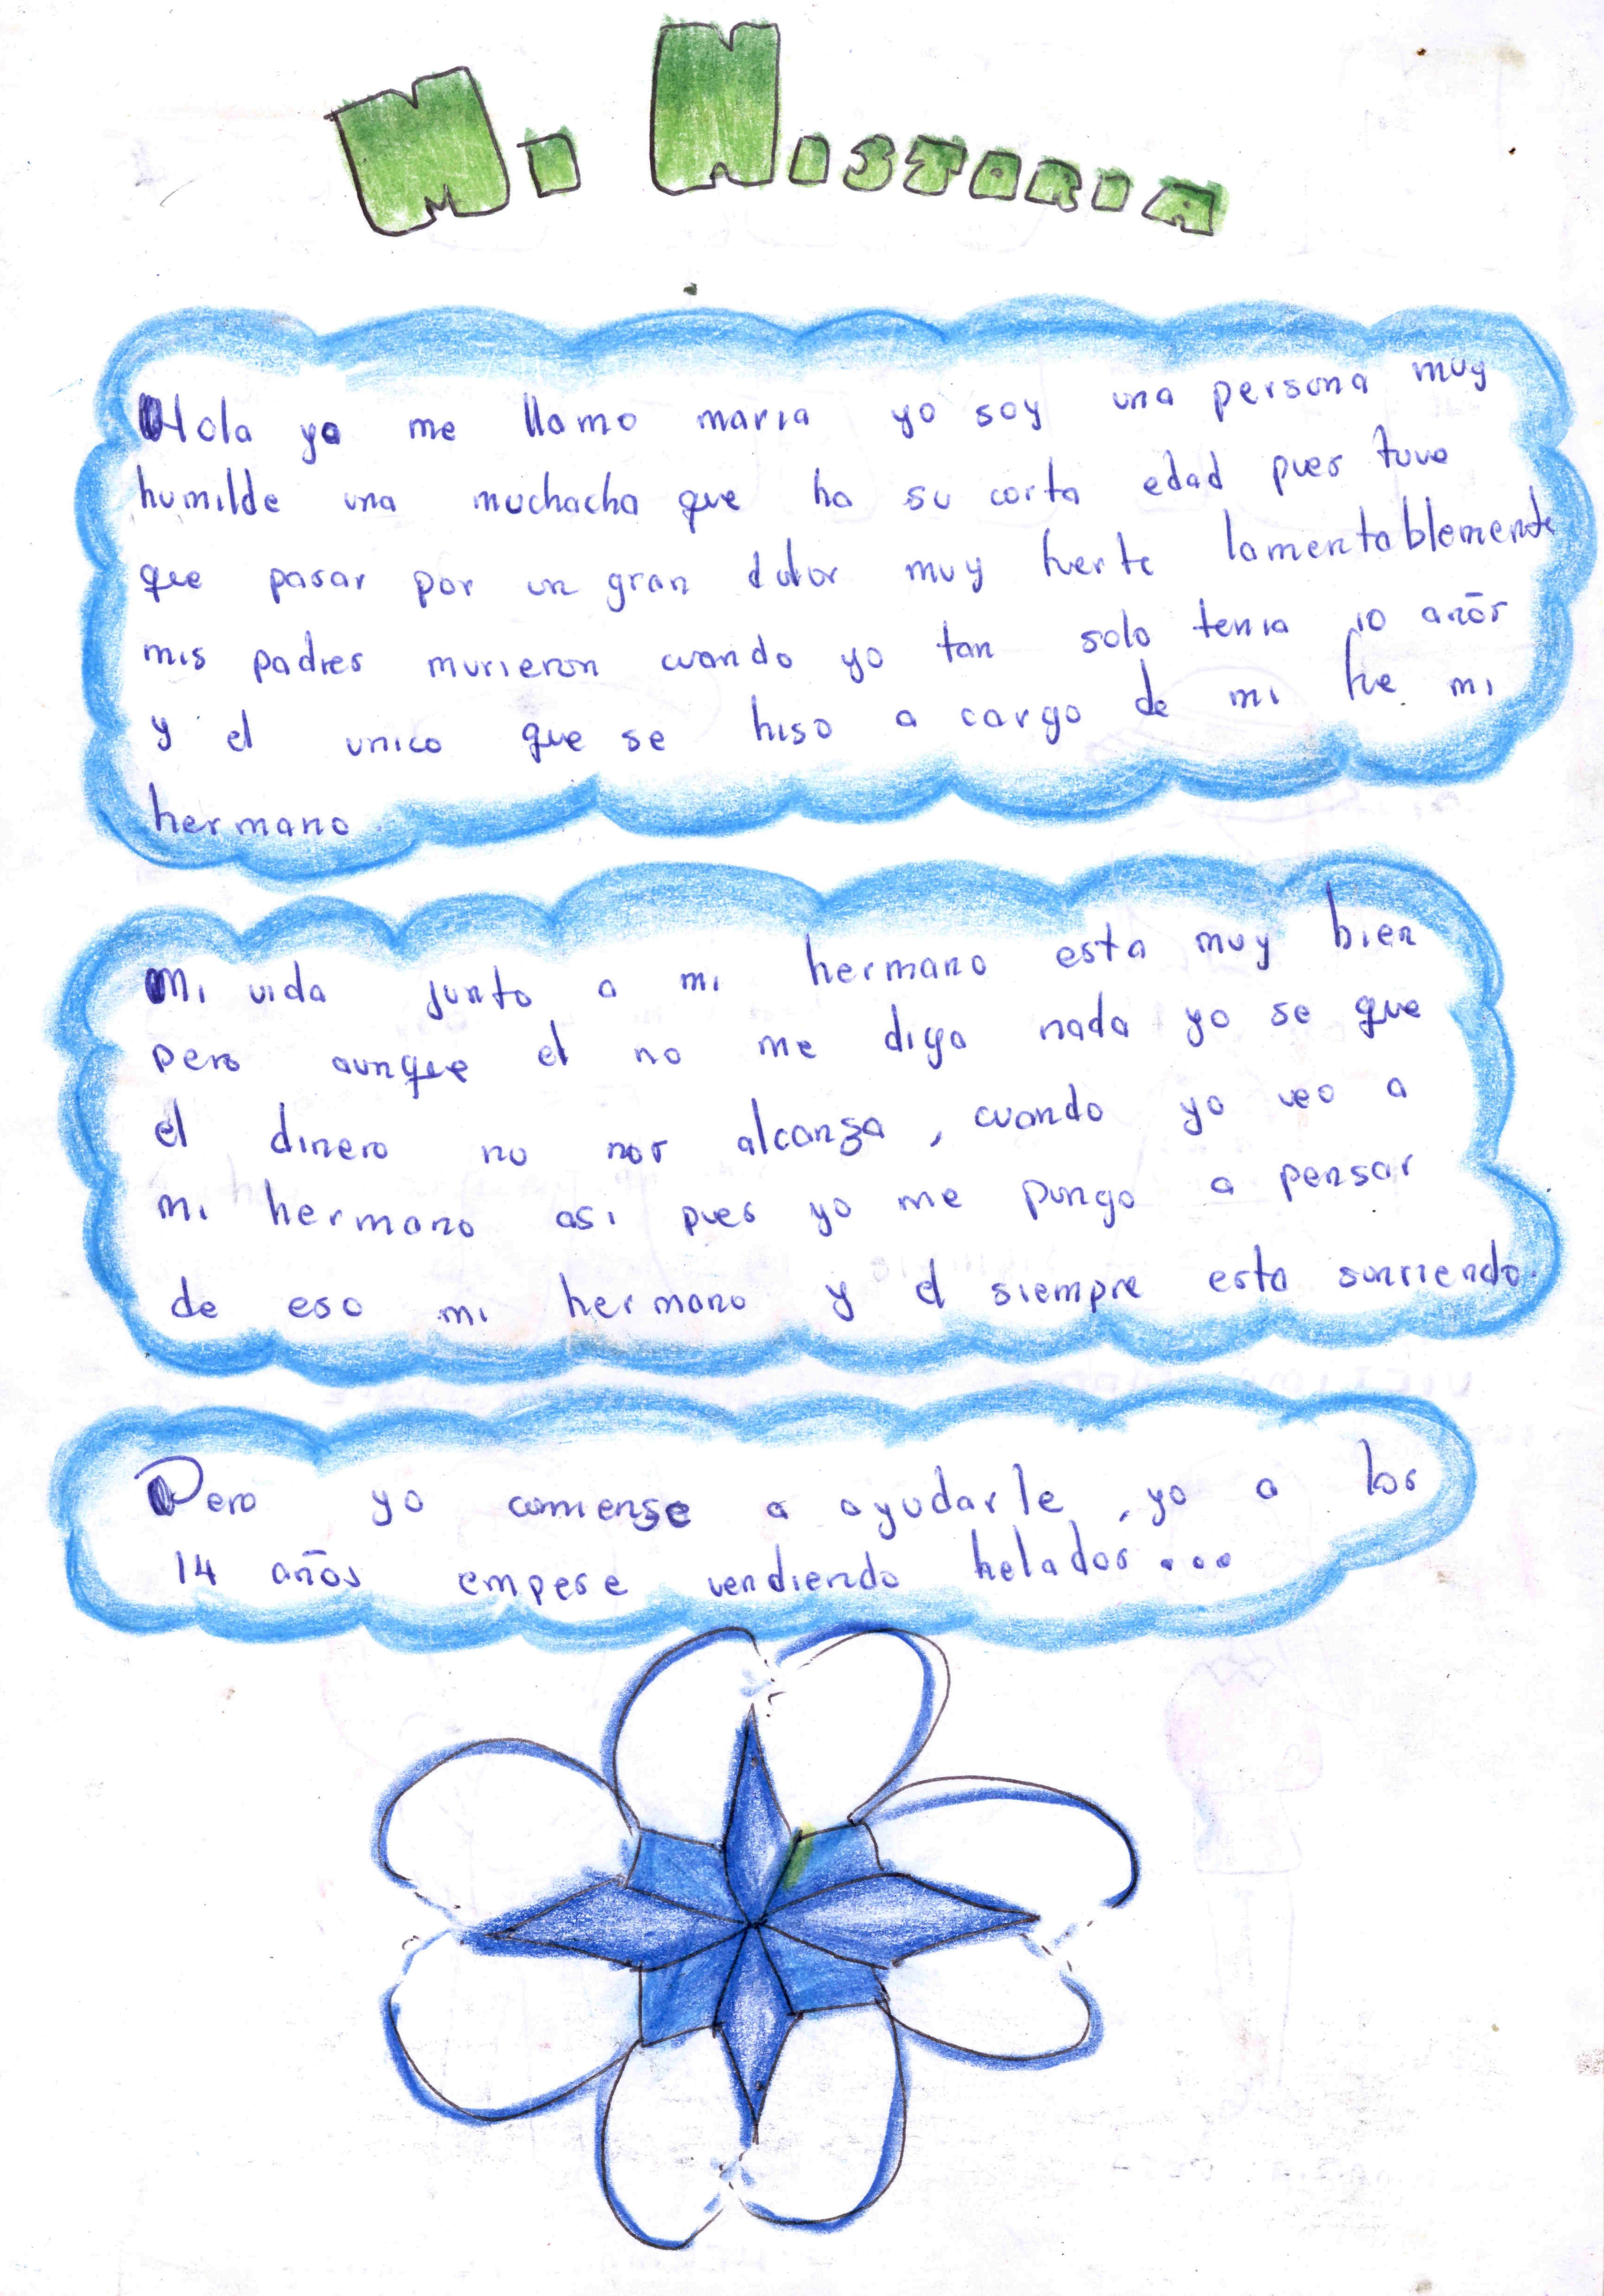 Mi Historia
Hola yo me llamo maria yo soy una persona muy
humilde una muchacha que ha su corta edad pues tuve
que pasar por un gran dolor muy fuerte lamentablemente
mis padres murieron cuando yo tan solo tenia 10 años
y el unico que se hiso a cargo de mi fue mi
hermano
Mi vida junto a mi hermano esta muy bien
pero aunque el no me diga nada yo se que
el dinero no nos alcanza, cuando yo veo a
mi hermano asi pues yo me pongo a pensar
de eso mi hermano y el siempre esta sonriendo.
Pero yo comense a ayudarle, yo a los
14 años empese vendiendo helados...